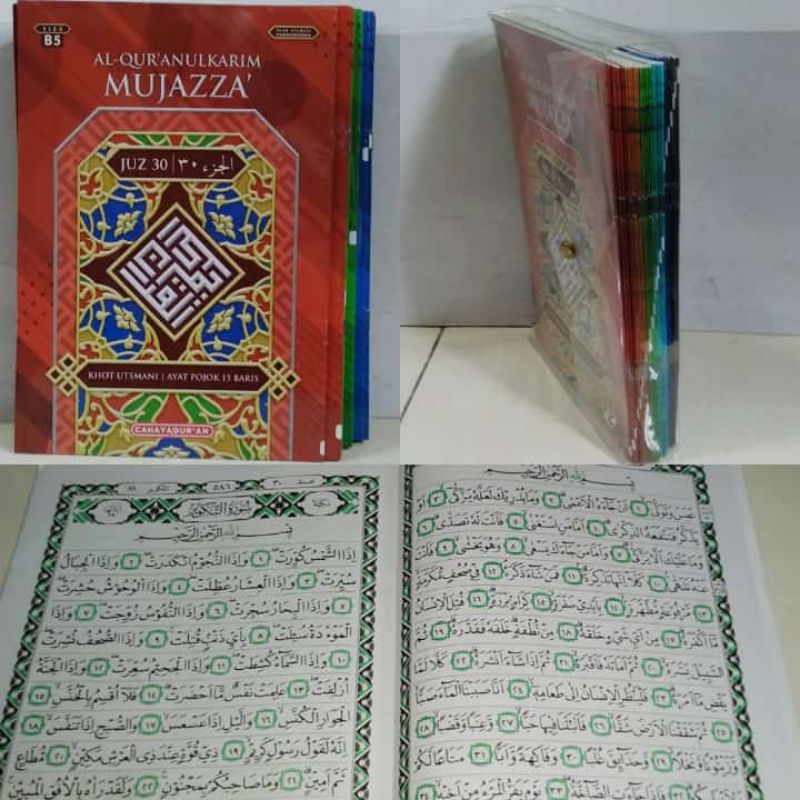 SIZE
B5
AL-QUR'ANULKARIM
MUJAZZA'
JUZ 30 | الجزء ٣٠
KHOT UTSMANI | AYAT POJOK 15 BARIS
CAHAYAQUR'AN
٥٨٦
سُورَةُ التَّكْوِيْرِ
بِسْمِ اللّٰهِ الرَّحْمٰنِ الرَّحِيْمِ
اِذَا الشَّمْسُ كُوِّرَتْ ١ وَاِذَا النُّجُوْمُ انْكَدَرَتْ ٢ وَاِذَا الْجِبَالُ
سُيِّرَتْ ٣ وَاِذَا الْعِشَارُ عُطِّلَتْ ٤ وَاِذَا الْوُحُوْشُ حُشِرَتْ
٥ وَاِذَا الْبِحَارُ سُجِّرَتْ ٦ وَاِذَا النُّفُوْسُ زُوِّجَتْ ٧ وَاِذَا
الْمَوْءٗدَةُ سُىِٕلَتْ ٨ بِاَيِّ ذَنْۢبٍ قُتِلَتْ ٩ وَاِذَا الصُّحُفُ نُشِرَتْ
١٠ وَاِذَا السَّمَاۤءُ كُشِطَتْ ١١ وَاِذَا الْجَحِيْمُ سُعِّرَتْ ١٢ وَاِذَا الْجَنَّةُ
اُزْلِفَتْ ١٣ عَلِمَتْ نَفْسٌ مَّآ اَحْضَرَتْ ١٤ فَلَآ اُقْسِمُ بِالْخُنَّسِ ١٥
الْجَوَارِ الْكُنَّسِ ١٦ وَالَّيْلِ اِذَا عَسْعَسَ ١٧ وَالصُّبْحِ اِذَا تَنَفَّسَ ١٨
اِنَّهٗ لَقَوْلُ رَسُوْلٍ كَرِيْمٍ ١٩ ذِيْ قُوَّةٍ عِنْدَ ذِى الْعَرْشِ مَكِيْنٍ ٢٠ مُطَاعٍ
ثَمَّ اَمِيْنٍ ٢١ وَمَا صَاحِبُكُمْ بِمَجْنُوْنٍ ٢٢ وَلَقَدْ رَاٰهُ بِالْاُفُقِ الْمُبِيْنِ
بِسْمِ اللّٰهِ الرَّحْمٰنِ الرَّحِيْمِ
عَبَسَ وَتَوَلّٰىٓ ١ اَنْ جَاۤءَهُ الْاَعْمٰى ٢ وَمَا يُدْرِيْكَ لَعَلَّهٗ يَزَّكّٰىٓ ٣ اَوْ
يَذَّكَّرُ فَتَنْفَعَهُ الذِّكْرٰى ٤ اَمَّا مَنِ اسْتَغْنٰى ٥ فَاَنْتَ لَهٗ تَصَدّٰى ٦
وَمَا عَلَيْكَ اَلَّا يَزَّكّٰى ٧ وَاَمَّا مَنْ جَاۤءَكَ يَسْعٰى ٨ وَهُوَ يَخْشٰى ٩ فَاَنْتَ
عَنْهُ تَلَهّٰى ١٠ كَلَّآ اِنَّهَا تَذْكِرَةٌ ١١ فَمَنْ شَاۤءَ ذَكَرَهٗ ١٢ فِيْ صُحُفٍ مُّكَرَّمَةٍ
١٣ مَّرْفُوْعَةٍ مُّطَهَّرَةٍ ١٤ بِاَيْدِيْ سَفَرَةٍ ١٥ كِرَامٍ بَرَرَةٍ ١٦ قُتِلَ الْاِنْسَانُ
مَآ اَكْفَرَهٗ ١٧ مِنْ اَيِّ شَيْءٍ خَلَقَهٗ ١٨ مِنْ نُّطْفَةٍ خَلَقَهٗ فَقَدَّرَهٗ ١٩ ثُمَّ
السَّبِيْلَ يَسَّرَهٗ ٢٠ ثُمَّ اَمَاتَهٗ فَاَقْبَرَهٗ ٢١ ثُمَّ اِذَا شَاۤءَ اَنْشَرَهٗ ٢٢ كَلَّا لَمَّا
يَقْضِ مَآ اَمَرَهٗ ٢٣ فَلْيَنْظُرِ الْاِنْسَانُ اِلٰى طَعَامِهٖٓ ٢٤ اَنَّا صَبَبْنَا الْمَاۤءَ صَبًّا
٢٥ ثُمَّ شَقَقْنَا الْاَرْضَ شَقًّا ٢٦ فَاَنْۢبَتْنَا فِيْهَا حَبًّا ٢٧ وَّعِنَبًا وَّقَضْبًا ٢٨
وَّزَيْتُوْنًا وَّنَخْلًا ٢٩ وَّحَدَاۤىِٕقَ غُلْبًا ٣٠ وَّفَاكِهَةً وَّاَبًّا ٣١ مَّتَاعًا لَّكُمْ
٣٢ فَاِذَا جَاۤءَتِ الصَّاۤخَّةُ ٣٣ يَوْمَ يَفِرُّ الْمَرْءُ مِنْ اَخِيْهِ ٣٤